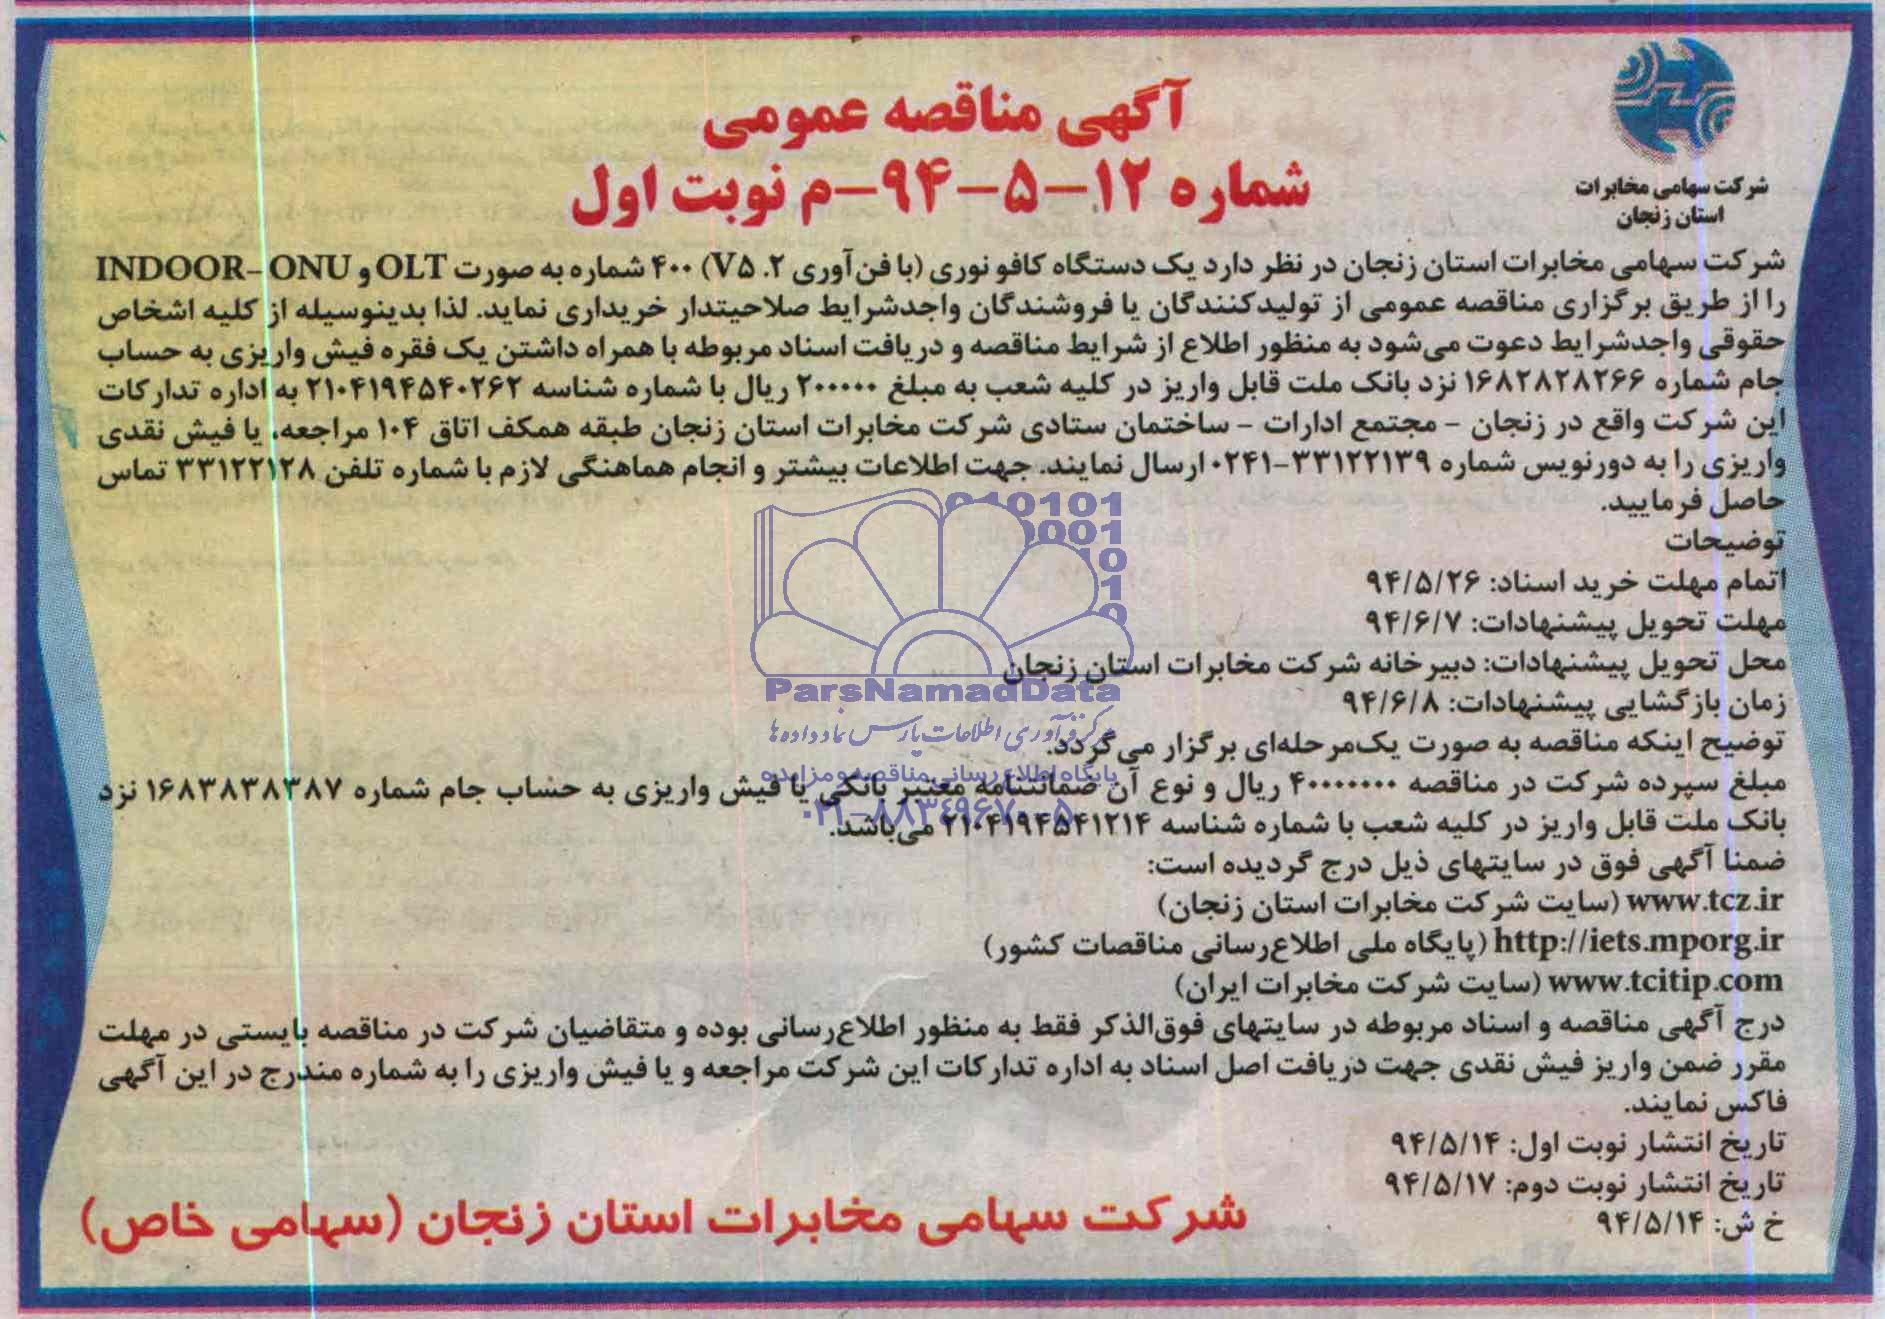 شرکت سهامی مخابرات
استان زنجان
آگهی مناقصه عمومی
شماره ۱۲–۵–۹۴–م نوبت اول
شرکت سهامی مخابرات استان زنجان در نظر دارد یک دستگاه کافو نوری (با فن‌آوری V۵.۲) ۴۰۰ شماره به صورت OLT و INDOOR-ONU
را از طریق برگزاری مناقصه عمومی از تولیدکنندگان یا فروشندگان واجدشرایط صلاحیتدار خریداری نماید. لذا بدینوسیله از کلیه اشخاص
حقوقی واجدشرایط دعوت می‌شود به منظور اطلاع از شرایط مناقصه و دریافت اسناد مربوطه با همراه داشتن یک فقره فیش واریزی به حساب
جام شماره ۱۶۸۲۸۲۸۲۶۶ نزد بانک ملت قابل واریز در کلیه شعب به مبلغ ۲۰۰۰۰۰ ریال با شماره شناسه ۲۱۰۴۱۹۴۵۴۰۲۶۲ به اداره تدارکات
این شرکت واقع در زنجان - مجتمع ادارات - ساختمان ستادی شرکت مخابرات استان زنجان طبقه همکف اتاق ۱۰۴ مراجعه، یا فیش نقدی
واریزی را به دورنویس شماره ۳۳۱۲۲۱۳۹-۰۲۴۱ ارسال نمایند. جهت اطلاعات بیشتر و انجام هماهنگی لازم با شماره تلفن ۳۳۱۲۲۱۲۸ تماس
حاصل فرمایید.
توضیحات
اتمام مهلت خرید اسناد: ۹۴/۵/۲۶
مهلت تحویل پیشنهادات: ۹۴/۶/۷
محل تحویل پیشنهادات: دبیرخانه شرکت مخابرات استان زنجان
زمان بازگشایی پیشنهادات: ۹۴/۶/۸
توضیح اینکه مناقصه به صورت یک‌مرحله‌ای برگزار می‌گردد.
مبلغ سپرده شرکت در مناقصه ۴۰۰۰۰۰۰۰ ریال و نوع آن ضمانتنامه معتبر بانکی یا فیش واریزی به حساب جام شماره ۱۶۸۳۸۳۸۳۸۷ نزد
بانک ملت قابل واریز در کلیه شعب با شماره شناسه ۲۱۰۴۱۹۴۵۴۱۲۱۴ می‌باشد.
ضمنا آگهی فوق در سایتهای ذیل درج گردیده است:
www.tcz.ir (سایت شرکت مخابرات استان زنجان)
http://iets.mporg.ir (پایگاه ملی اطلاع‌رسانی مناقصات کشور)
www.tcitip.com (سایت شرکت مخابرات ایران)
درج آگهی مناقصه و اسناد مربوطه در سایتهای فوق‌الذکر فقط به منظور اطلاع‌رسانی بوده و متقاضیان شرکت در مناقصه بایستی در مهلت
مقرر ضمن واریز فیش نقدی جهت دریافت اصل اسناد به اداره تدارکات این شرکت مراجعه و یا فیش واریزی را به شماره مندرج در این آگهی
فاکس نمایند.
تاریخ انتشار نوبت اول: ۹۴/۵/۱۴
تاریخ انتشار نوبت دوم: ۹۴/۵/۱۷
خ ش: ۹۴/۵/۱۴
شرکت سهامی مخابرات استان زنجان (سهامی خاص)
ParsNamadData
مرکز فرآوری اطلاعات پارس نماد داده ها
پایگاه اطلاع رسانی مناقصه و مزایده
۰۲۱-۸۸۳۴۹۶۷۰-۵